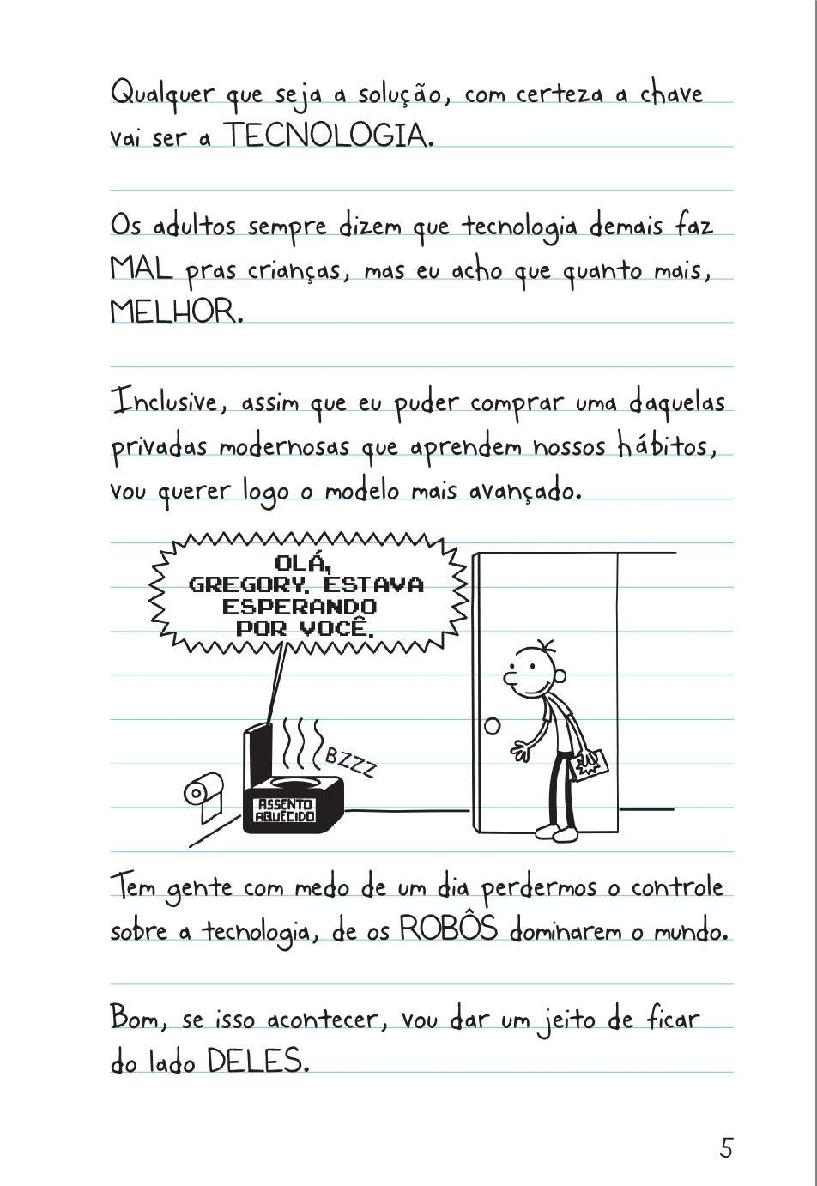 Qualquer que seja a solução, com certeza a chave
vai ser a TECNOLOGIA.
Os adultos sempre dizem que tecnologia demais faz
MAL pras crianças, mas eu acho que quanto mais,
MELHOR.
Inclusive, assim que eu puder comprar uma daquelas
privadas modernosas que aprendem nossos hábitos,
vou querer logo o modelo mais avançado.
OLÁ,
GREGORY. ESTAVA
ESPERANDO
POR VOCÊ.
BZZZ
ASSENTO
AQUECIDO
Tem gente com medo de um dia perdermos o controle
sobre a tecnologia, de os ROBÔS dominarem o mundo.
Bom, se isso acontecer, vou dar um jeito de ficar
do lado DELES.
5